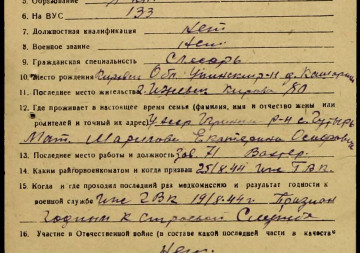 5. Образование
6. На ВУС 133
7. Должностная квалификация нет
8. Военное звание нет
9. Гражданская специальность Слесарь
10. Место рождения Обл. р-н д.
11. Последнее место жительства г. Ижевск Кирова 80
12. Где проживает в настоящее время семья (фамилия, имя и отчество жены или
родителей и точный их адрес) р-н с.
Мат. Екатерина
13. Последнее место работы и должность Зав. 71 Вахтер
14. Каким райгорвоенкоматом и когда призван 25/8.44 Иж ГВК.
15. Когда и где проходил последний раз медкомиссию и результат годности к
военной службе Иж ГВК 19/8.44г. Признан
Годным к строевой службе
16. Участие в Отечественной войне (в составе какой последней части и в качестве
Нет.